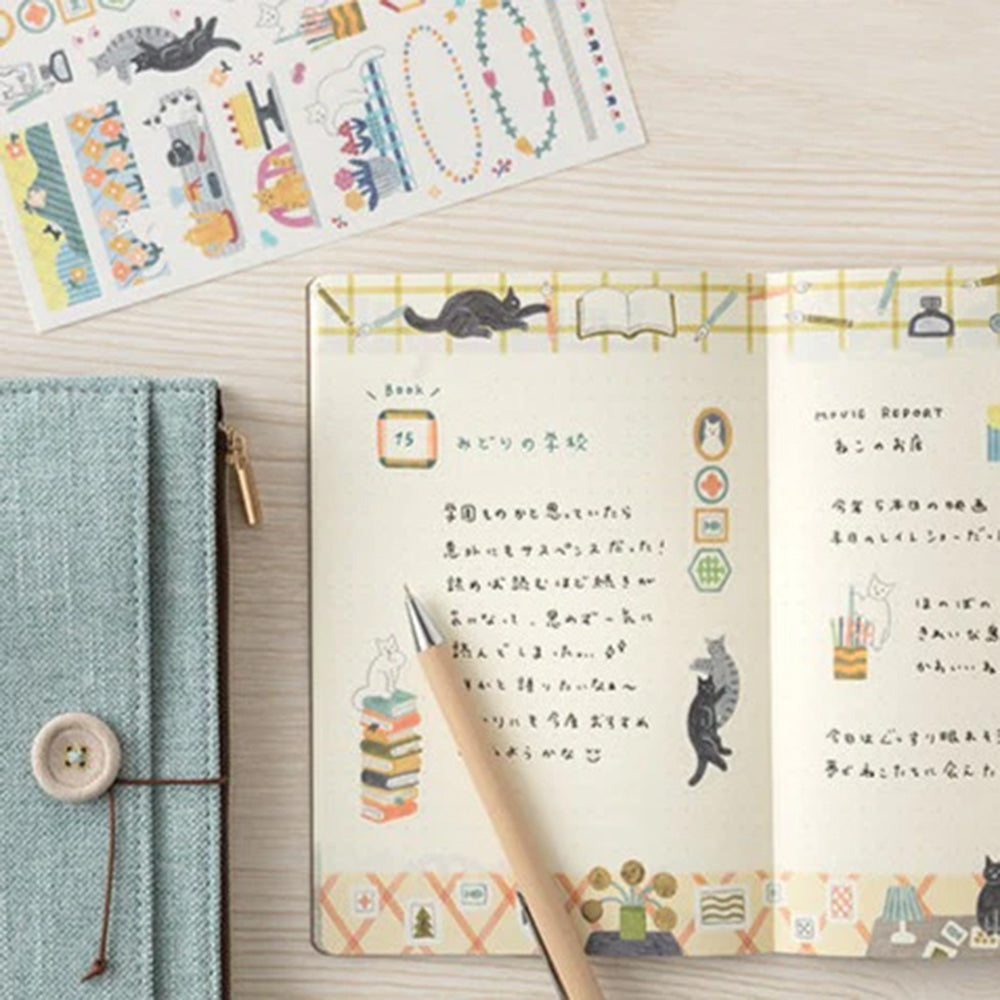 Book
15 みどりの学校
学園ものかと思っていたら
意外にもサスペンスだった!
読めば読むほど続きが
気になって、思わず一気に
読んでしまった...
と語りたいなぁ〜
りにも今度おすすめ
ようかな
MOVIE REPORT
ねこのお店
今年5本目の映画
本目の
ほのぼの
きれいな
かわいいね
今日はぐっすり眠れそ
夢でねこたちに会えた